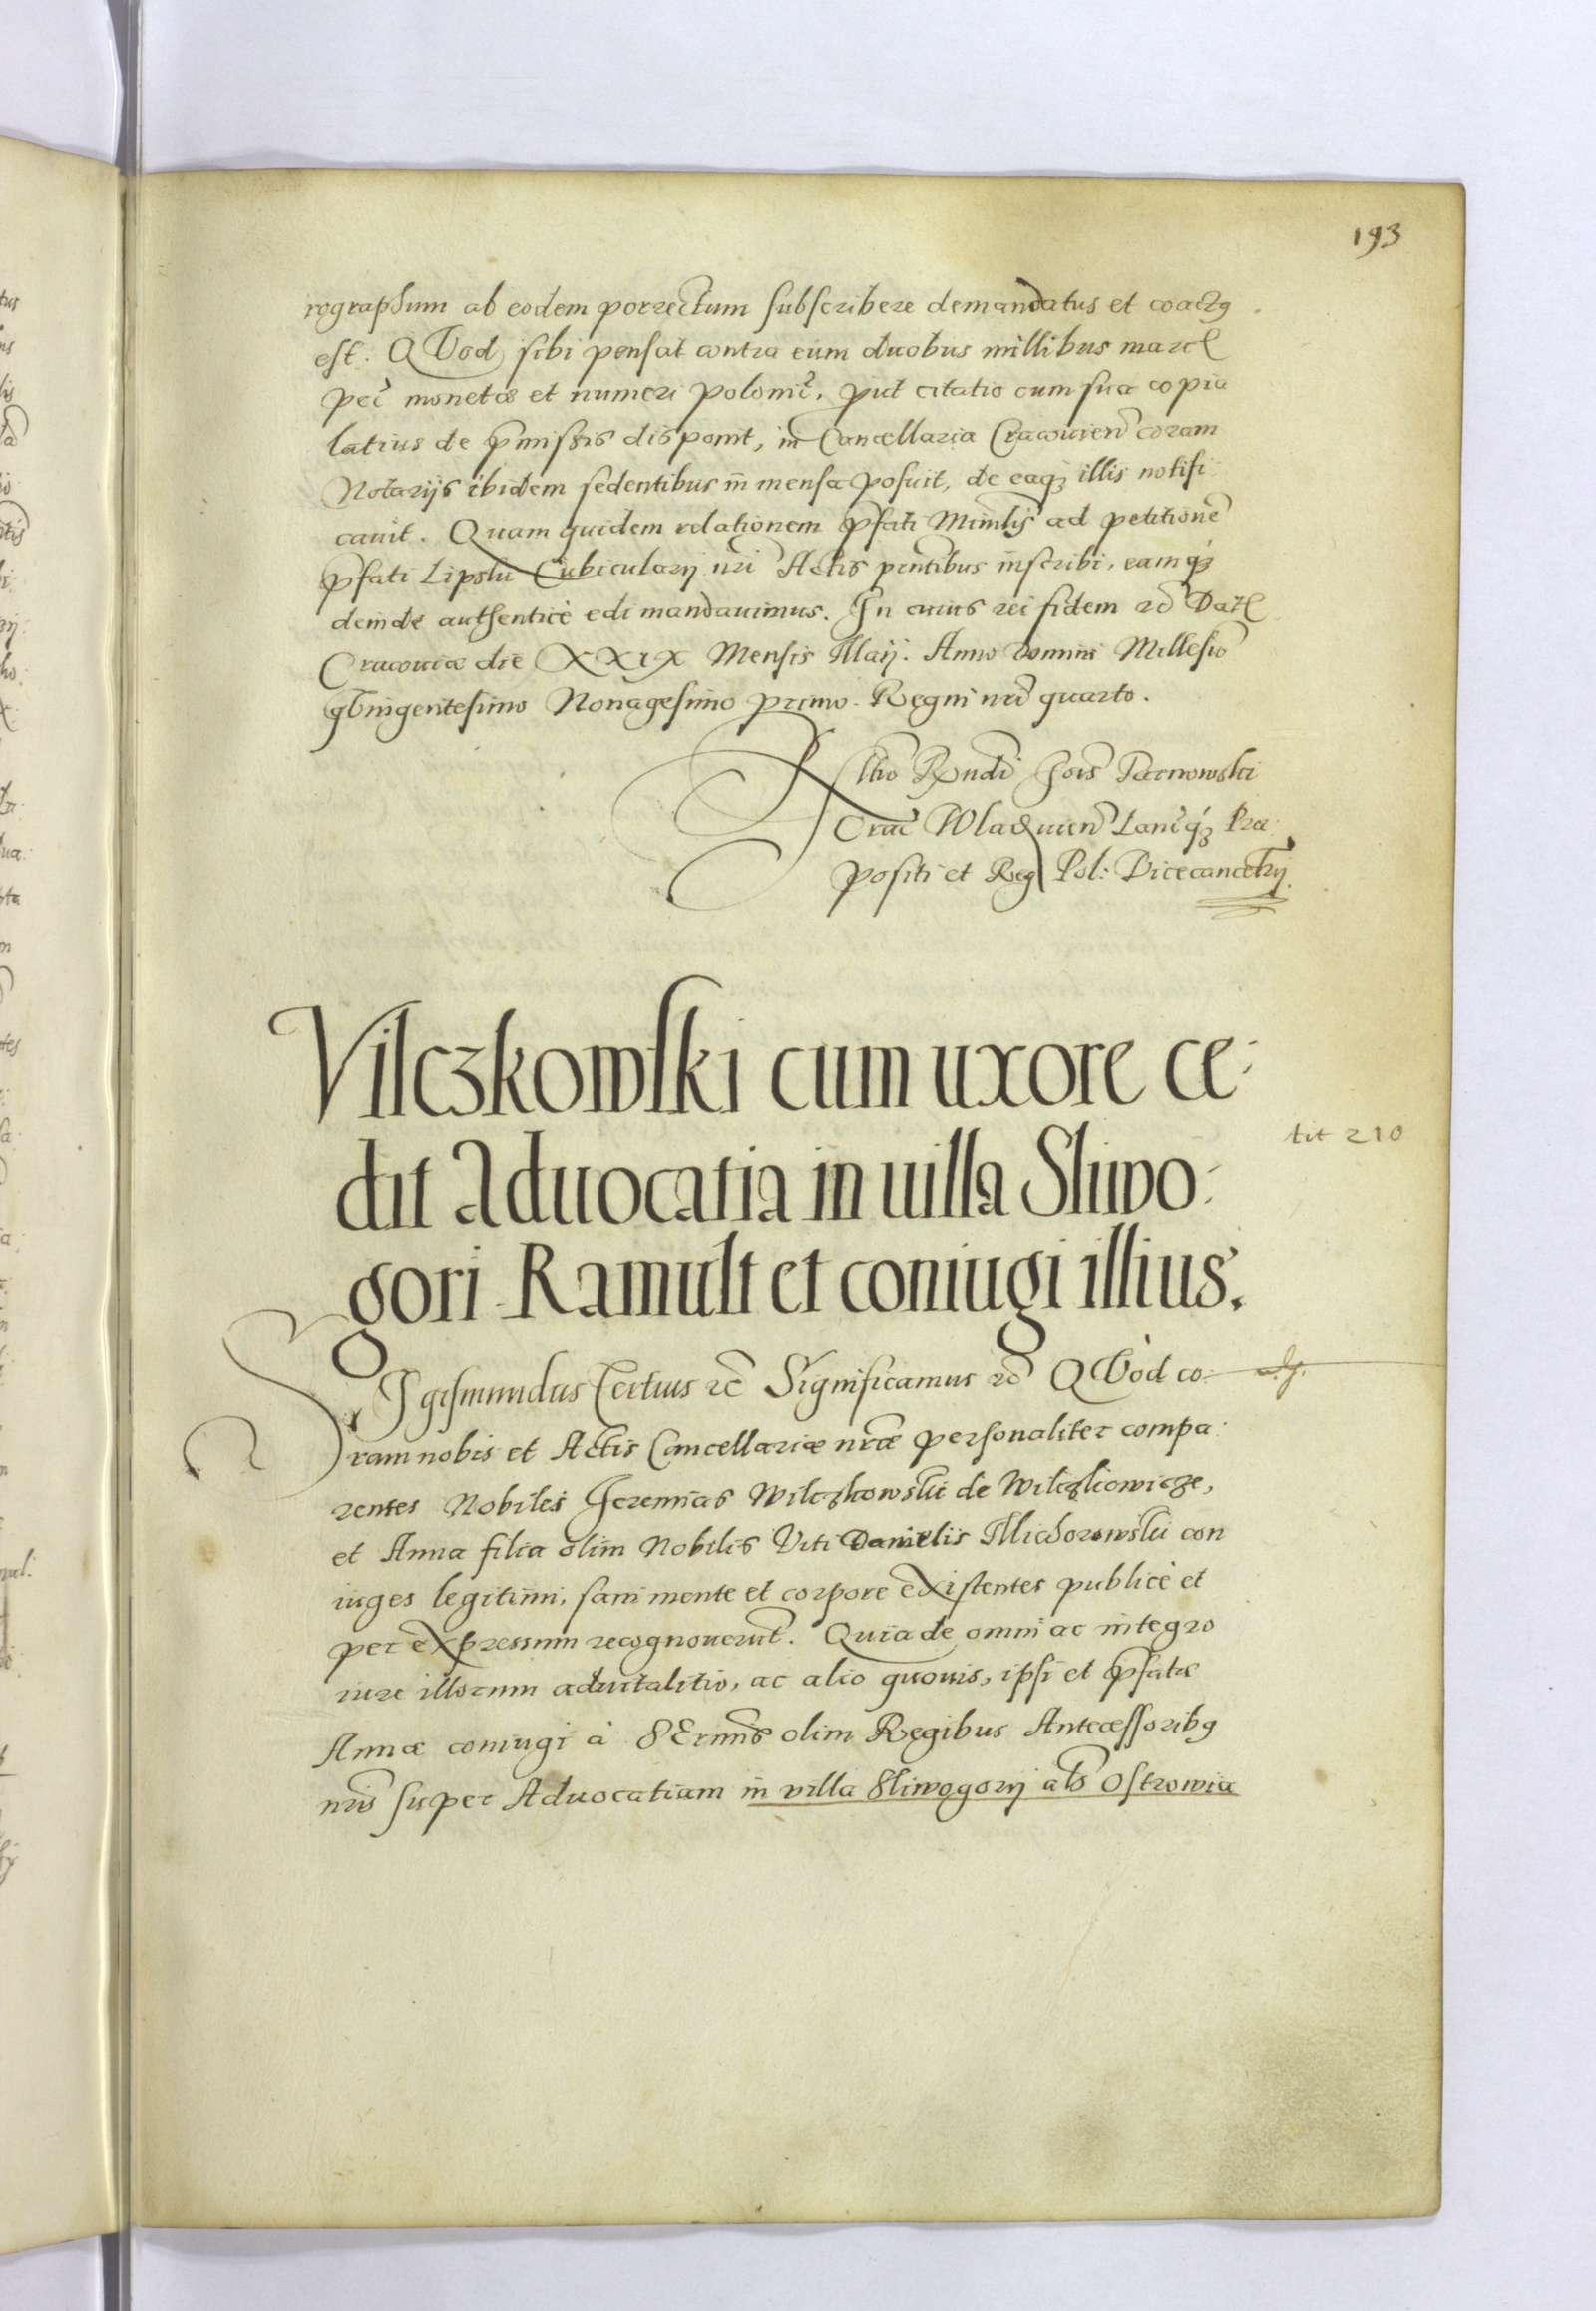 193
rographum ab eodem porrectum subscribere demandatus et coactꝯ
est. QVod sibi pensat contra eum duobus millibus marc
pec̃ monetæ et numeri polonic̃, put citatio cum sua copia
latius de p̃missis disponit, in Cancellaria Cracovien̄ coram
Notarijs ibidem sedentibus in mensa posuit, de eaqȝ illis notifi
cavit. Quam quidem relationem p̃fati Minr̃lis ad petitionē
p̃fati Lipski Cubicularij nr̃i Actis pn̄tibus inscribi, eamqȝ
deinde authenticè edi mandauimus. In cuius rei fidem ꝛc̄ Dat
Cracoviæ die XXIX Mensis Maij. Anno domini Millesi͠o
qVingentesimo Nonagesimo primo. Regni nr̃i quarto.
Rn̄di Joīs Tarnowski
Crac̃ Wladvien̄ Lanc̃qȝ Præ
positi et Reg Pol: Vicecancel̃rij.
Vilczkowski cum uxore ce-
dit aduocatia in uilla Sliwo-
tit 210
gori Ramult et coniugi illius.
SIgismundus Tertius ꝛc̄ Significamus ꝛc̄ QVòd co-
ram nobis et Actis Cancellariæ nr̃æ personaliter compa-
rentes Nobiles Jeremias Wilczkowski de Wilczkowicze,
et Anna filia olim Nobilis Viti Danielis Michorowski con
iuges legitimi, sani mente et corpore eXistentes publicè et
per eXpressum recognouerūt. Quia de omni ac integro
iure illorum aduitalitio, ac alio quovis, ipsi et p̃fatæ
Annæ coniugi à SErm̄is olim Regibus Antecessoribꝯ
nr̃is super Aduocatiam in villa Sliwogorij als̃ Ostrowia